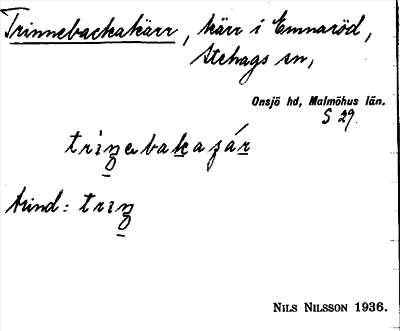 Trinnebackakärr, kärr i Emnaröd,
Stehags sn,
Onsjö hd, Malmöhus län.
S 29.
trin̲ebak̲aʒár̲
trind: trin̲
NILS NILSSON 1936.